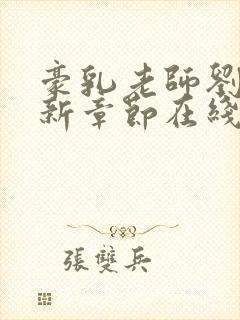 豪乳老師劉
新章節在綫
張雙兵